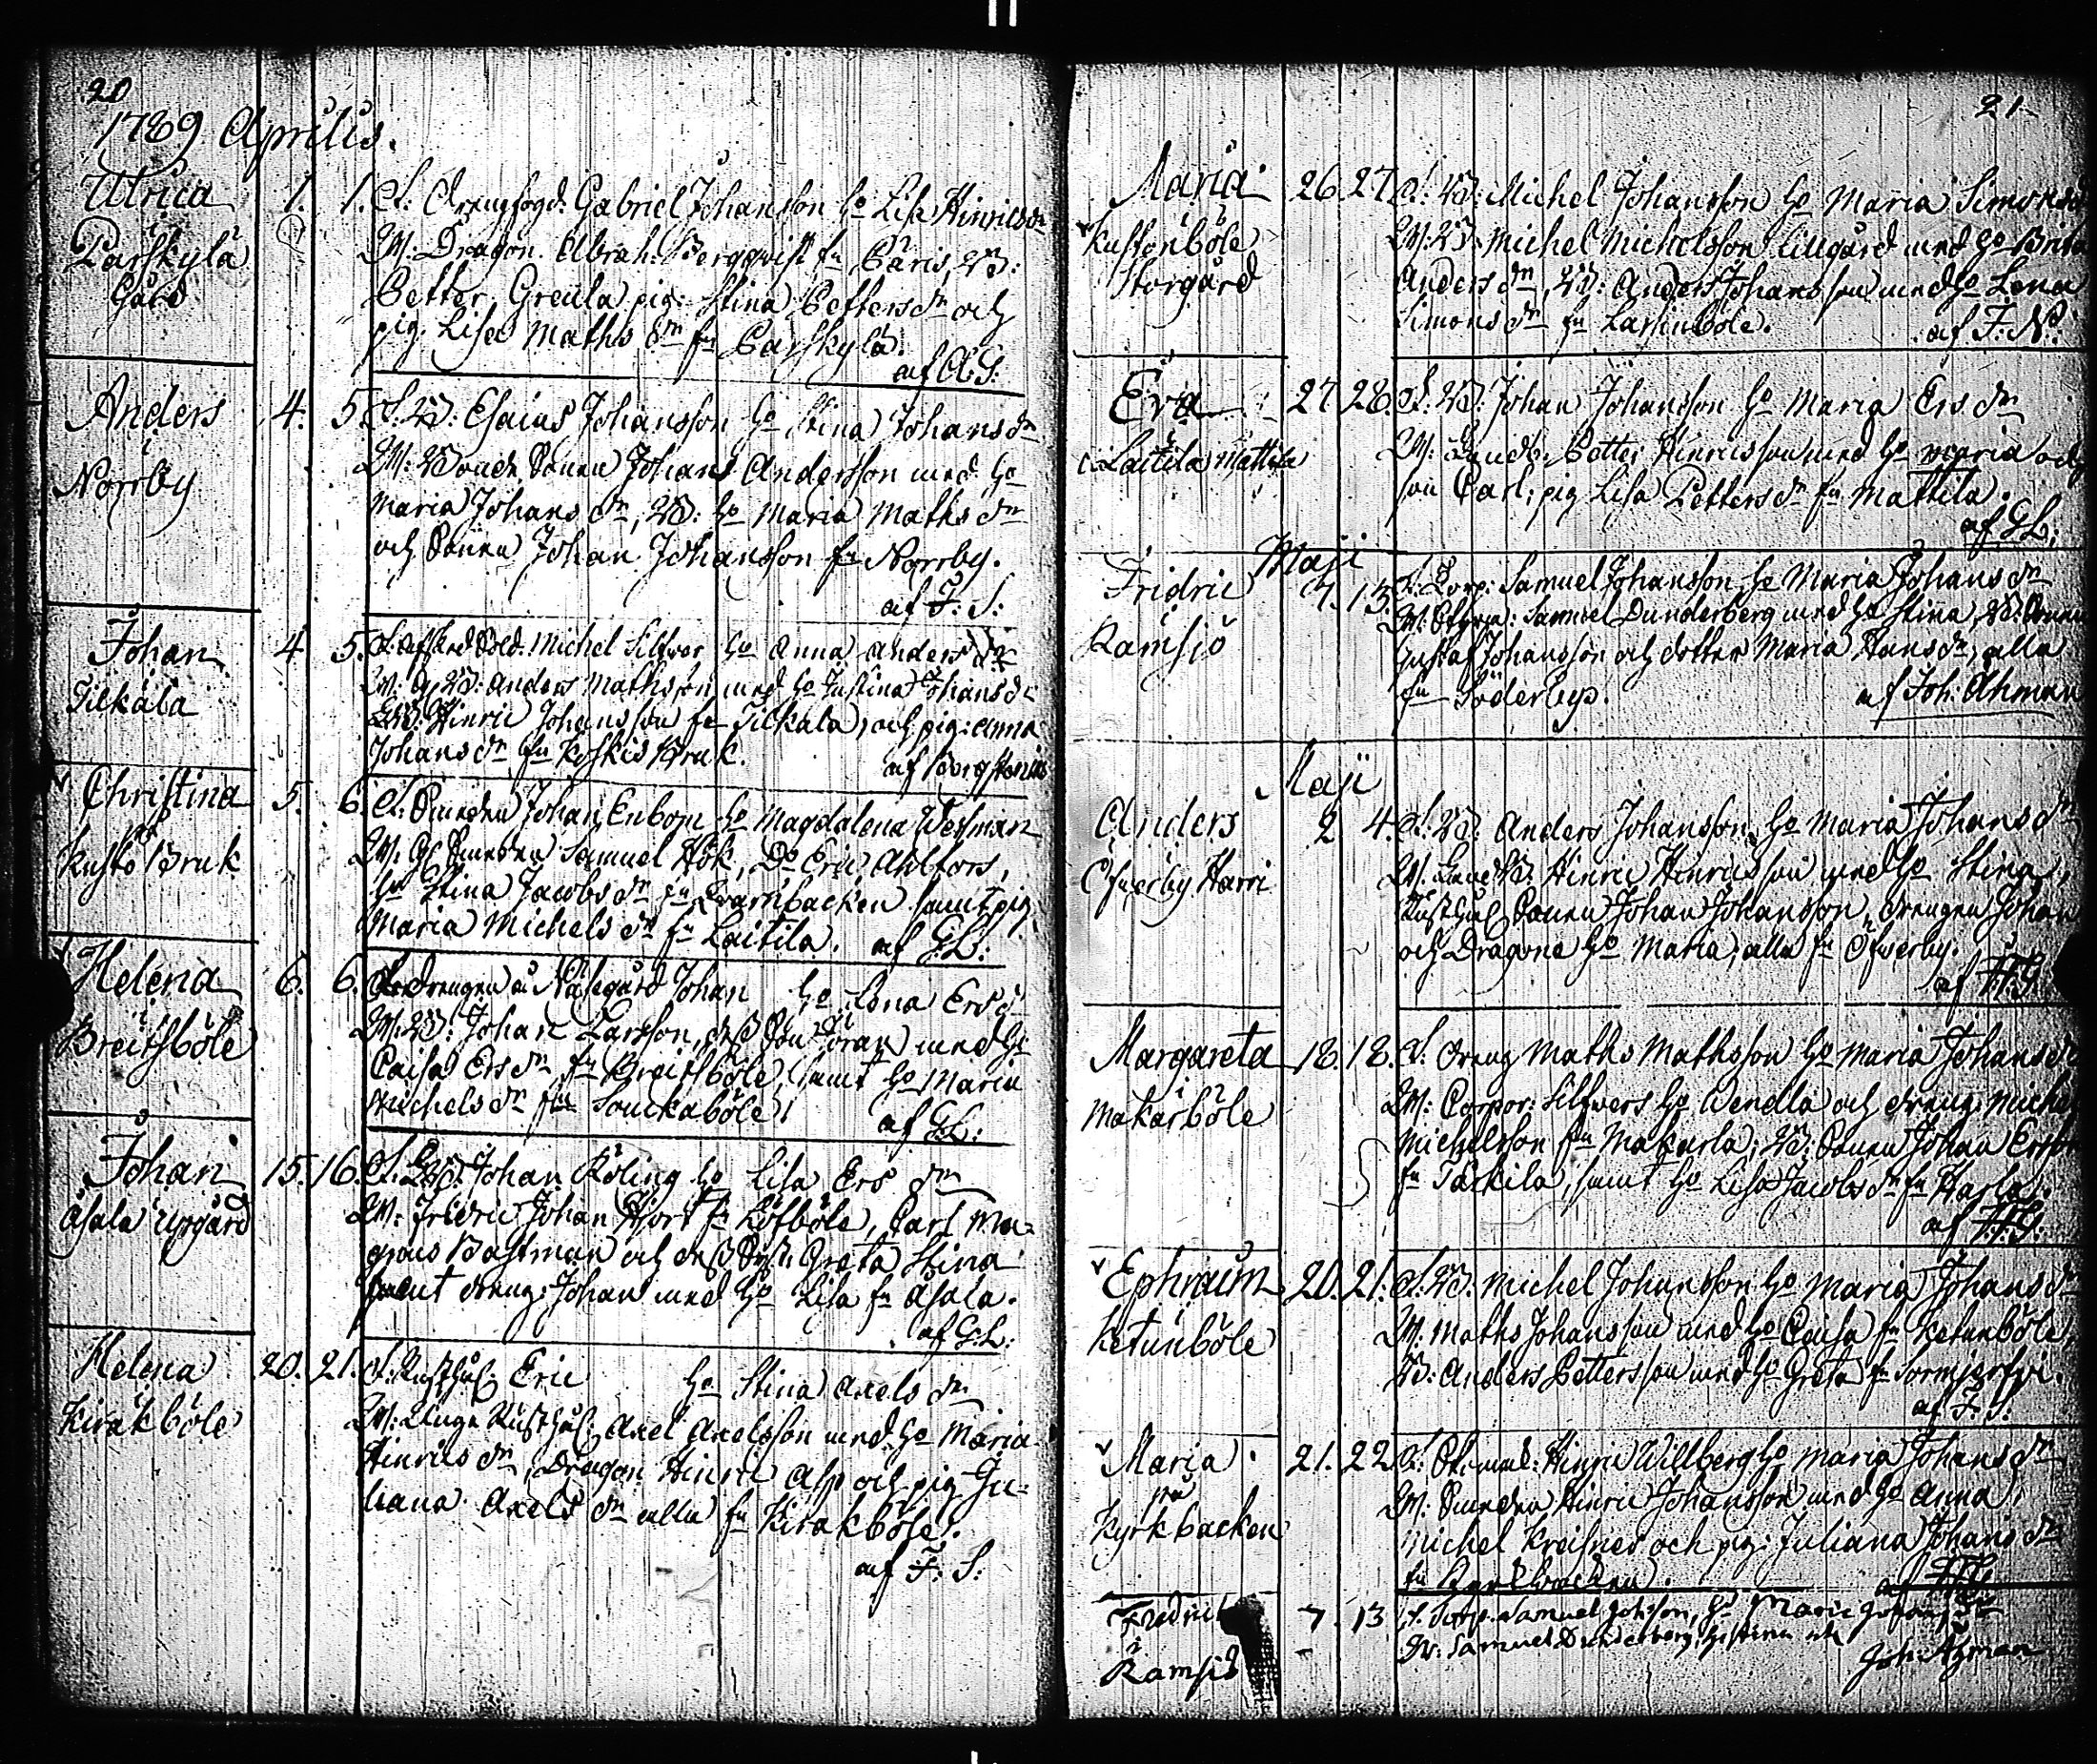 20
1789 Aprilis.
Ulrica
Parskyla
Gård
1. 1. F: Drengfogd: Gabriel Johansson ho Lisa Hinricsdr
W: Dragon. Abrah: Bergqwist fn Päris, B:
Petter Greula pig: Stina Pettersdr och
pig. Lisa Mathsdr fn Parskylä.
af A: S:
Anders
i
Norrby
4. 5. F: B: Esaias Johansson ho Stina Johansdr
W: Bonde Sonen Johan Andersson med ho
Maria Johans dr, B: ho Maria Maths dr
och Sonen Johan Johansson fn Norrby.
af F: S:
Johan
Tilkala
4 5. F: Afsked Sold. Michel Silfwer ho Anna Anders dr
W: B: Anders Mathsson med ho Justina Johansdr
Hinric Johansson fr Tilkala, och pig: Anna
Johans dr fn Koskis Bruk.
af Borgstenius
Christina
på
Kusto Bruk
5. 6. F: Smeden Johan Enbom ho Magdalena Wesman
W: Smeden Samuel Hök, Do Eric Ahlfors,
hu Stina Jacobs dr fn Qvarnbacken samt pig
Maria Michels dr fn Laitila. af G: L:
Helena
i
Breitsböle
6. 6. F: Drengen å Näsegård Johan ho Lena Ers dr
W: B: Johan Larsson, dess Son Göran med ho
Caisa Ers dr fn Breitsböle, samt ho Maria
Michels dr fn Souckaböle.
af G: L:
Johan
Åsala Upgård
15. 16. F: Johan Röling ho Lisa Ers dr
W: Fridric Johan Hjort fn Löfböle, Carl Mag-
nus Bastman och dess Syst: Greta Stina
samt dreng: Johan med ho Lisa fn Åsala.
af G: L:
Helena
Kirakböle
20. 21. F: Rusthål: Eric ho Stina Axels dr
W: Unga Rusthål: Axel Axelsson med ho Maria
Hinrics dr, Dragon Hinric Alp och pig Ju-
liana Axels dr alla fn Kirakböle.
af F: S:
21
Maria
Kustonböle
Storgård
26. 27. F: B: Michel Johansson ho Maria Simonsdr
W: B: Michel Michelsson Lillgård med ho Brita
Anders dr, B: Anders Johansson med ho Lena
Simons dr fn Lassinböle.
af F: N:
Eva
i Laitila Mattila
27 28. F: B: Johan Johansson ho Maria Ers dr
W: Landb: Petter Hinricsson med ho Maria och
son Carl; pig Lisa Petters dr fn Mattila.
af G: L:
Maji
Fridric
Ramsjö
7. 13. F: Torp: Samuel Johansson ho Maria Johans dr
W: Samuel Dunderberg med ho Stina, B: Sonen
Gustaf Johansson och dotter Maria Hans dr, alla
fn Söderby.
af Joh: Åhman
Maji
Anders
Öfwerby Harri
2 4. F: B: Anders Johansson ho Maria Johans dr
W: Landb: Hinric Hinricsson med ho Stina,
Rusthål: Sonen Johan Johansson, drengen Johan
och Dragone ho Maria, alla fn Öfwerby.
af F: G
Margareta
i
Makarböle
18. 18. F: Dreng Maths Mathsson ho Maria Johansdr
W: Corpor: Silfwers ho Wendla och dreng: Michel
Michelsson fn Makarla; B: Sonen Johan Ersson
fn Tarkila, samt ho Lisa Jacobs dr fn Harla.
af F: G:
Ephraim
Ketunböle
20. 21. F: B: Michel Johansson ho Maria Johans dr
W: Maths Johansson med ho Caisa fn Ketunböle,
B: Anders Pettersson med ho Greta fn Sormjerfvi.
af F: S:
Maria
på
Kyrkbacken
21. 22 F: Hinric Willberg ho Maria Johans dr
W: Smeden Hinric Johansson med ho Anna,
Michel Kreisner och pig: Juliana Johans dr
fn Kyrkbacken.
Fredric
i
Ramsiö
7. 13 F. Torp. Samuel Johsson, ho Maria Johans dr
W: Samuel Dunderberg, ho Stina etc
Joh: Åhman